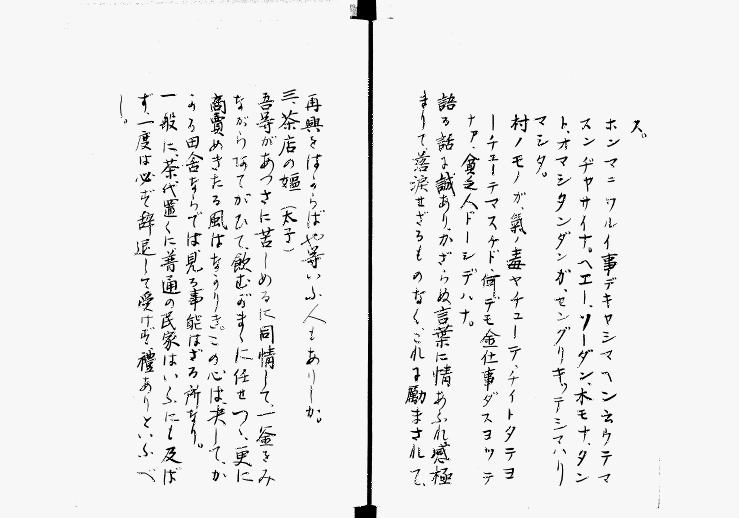 ス。
ホンマニワルイ事デキヤシマヘン云ウテマ
スンヂヤサイナ。ヘエー、ソーダン、木モナ、タン
ト、オマシタンダンガ、センダリキツテシマハリ
マシタ。
村ノモノガ、氣ノ毒ヤチユーテ、チイトタテヨ
ーチユーテマスケド、何デモ金仕事ダスヨツテ
ナア、貧乏人ドーシデハナ。
語る話に誠あり、かざらぬ言葉に情あふれ感極
まりて、落淚せざるものなく、これに勵まされて、
再興をはからばや等いふ人もありしか。
三、茶店の嫗(太子)
吾等があつさに苦しめるに同情して、一釜をみ
ながらあてがひて、飲むがまゝに任せつゝ、更に
商賣めきたる風はなかりき。この心は決して、か
かる田舍ならでは見る事能はざる所なり。
一般に茶代置くに普通の民家はいふにも及ば
ず、一度は必ず辞退して受けず、禮ありといふべ
し。